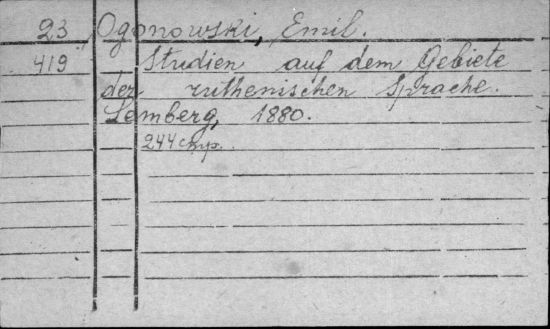 23 Ogonowski, Emil.
419 Studien auf dem Gebiete
der ruthenischen Sprache.
Lemberg, 1880.
244 стр.